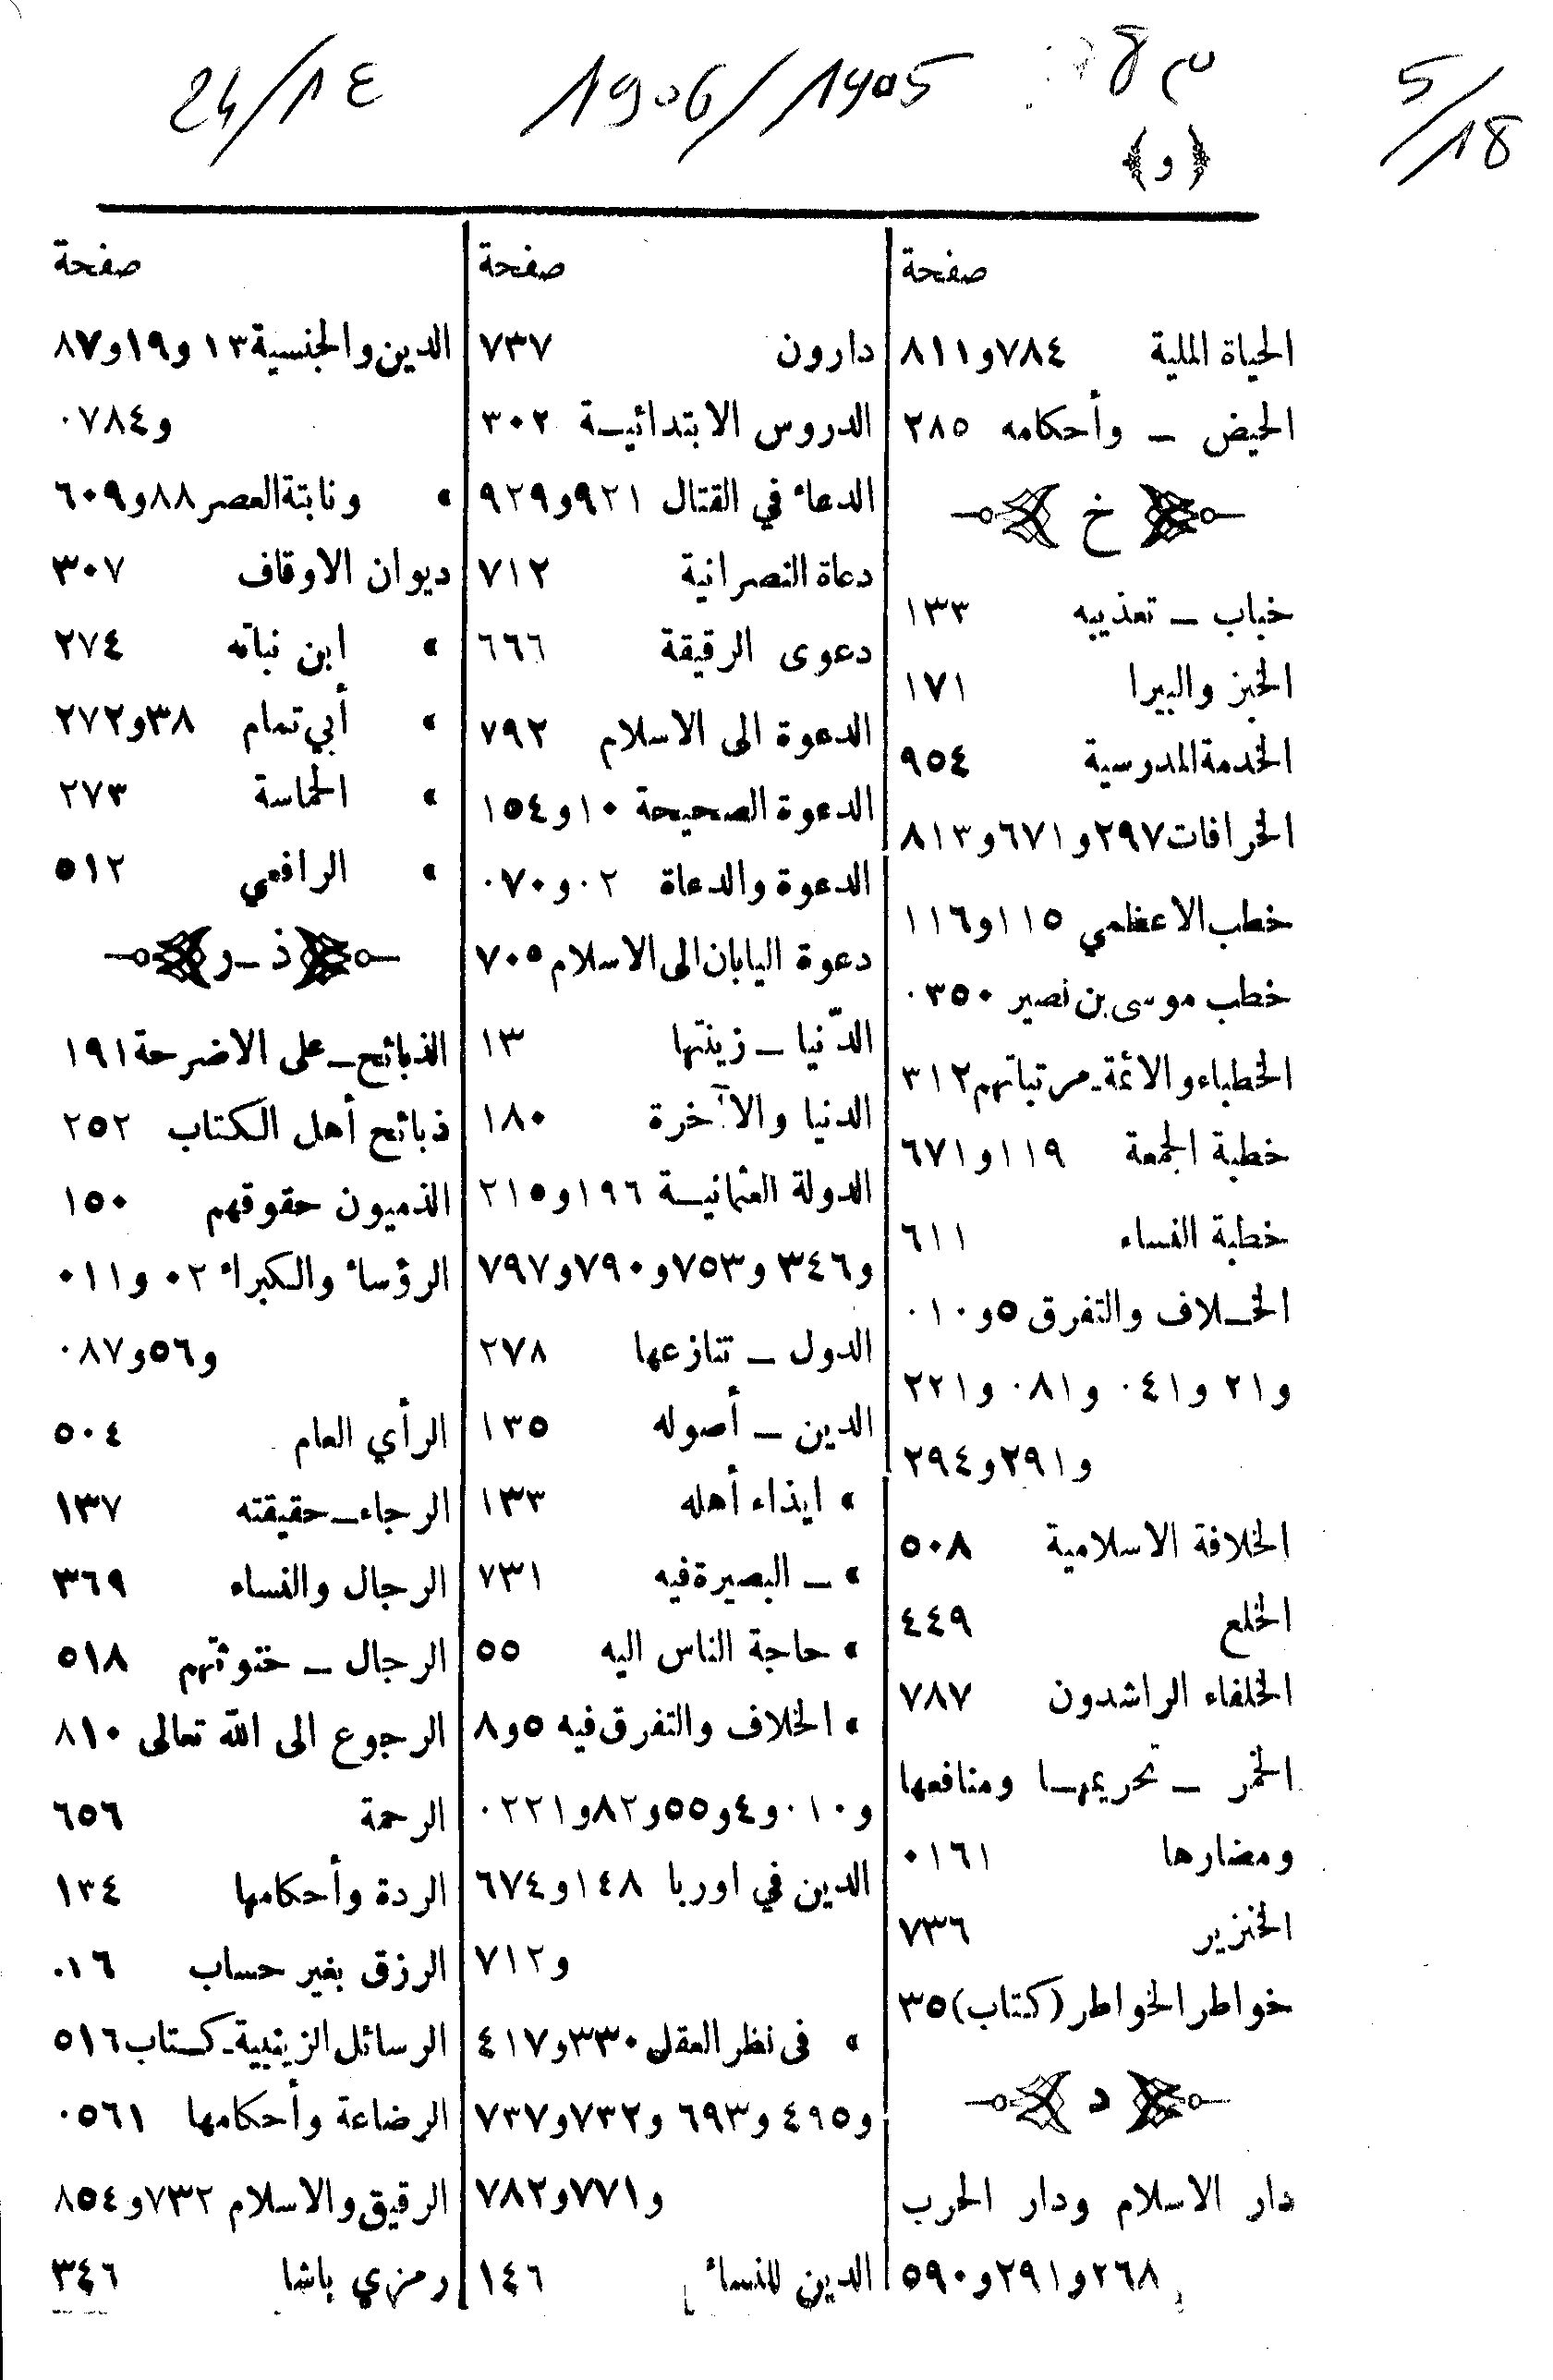 24/18 1906/1905
5/18
﴿ و ﴾
صفحة
الحياة الملية ٧٨٤ و ٨١١
الحيض ــ وأحكامه ٢٨٥
خ
خباب ــ تعذيبه ١٣٣
الخبز والبيرا ١٧١
الخدمة المدرسية ٩٥٤
الخرافات ٢٩٧ و ٦٧١ و ٨١٣
خطب الاعظمي ١١٥ و ١١٦
خطب موسى بن نصير ٣٥٠٠
الخطباء والائمة ـ مرتباتهم ٣١٢
خطبة الجمعة ١١٩ و ٦٧١
خطبة النساء ٦١١
الخــلاف والتفرق ٥ و ٠١٠
و ٢١ و ٠٤١ و ٠٨١ و ٢٢١
و ٢٩١ و ٢٩٤
الخلافة الاسلامية ٥٠٨
الخلع ٤٤٩
الخلفاء الراشدون ٧٨٧
الخمر ــ تحريمهــا ومنافعها
ومضارها ٠١٦١
الخنزير ٧٣٦
خواطر الخواطر (كتاب) ٣٥
د
دار الاسلام ودار الحرب
٢٦٨ و ٢٩١ و ٥٩٠
صفحة
دارون ٧٣٧
الدروس الابتدائيــة ٣٠٢
الدعاء في القتال ٩٢١ و ٩٢٩
دعاة النصرانية ٧١٢
دعوى الرقيقة ٦٦٦
الدعوة الى الاسلام ٧٩٢
الدعوة الصحيحة ١٠ و ١٥٤
الدعوة والدعاة ٠٢ و ٠٧٠
دعوة اليابان الى الاسلام ٧٠٥
الدّنيا ــ زينتها ١٣
الدنيا والآخرة ١٨٠
الدولة العثمانيــة ١٩٦ و ٢١٥
و ٣٤٦ و ٧٥٣ و ٧٩٠ و ٧٩٧
الدول ــ تنازعها ٢٧٨
الدين ــ أصوله ١٣٥
» ايذاء أهله ١٣٣
» ــ البصيرة فيه ٧٣١
» حاجة الناس اليه ٥٥
» الخلاف والتفرق فيه ٥ و ٨
و ٠١٠ و ٤ و ٥٥ و ٨٢ و ٠٢٢١
الدين في اوربا ١٤٨ و ٦٧٤
و ٧١٢
» فى نظر العقل ٣٣٠ و ٤١٧
و ٤٩٥ و ٦٩٣ و ٧٣٢ و ٧٣٧
و ٧٧١ و ٧٨٢
الدين للنساء ١٤٦
صفحة
الدين والجنسية ١٣ و ١٩ و ٨٧
و ٠٧٨٤
» ونابتة العصر ٨٨ و ٦٠٩
ديوان الاوقاف ٣٠٧
» ابن نباته ٢٧٤
» أبي تمام ٣٨ و ٢٧٢
» الحماسة ٢٧٣
» الرافعي ٥١٢
ذ ــ ر
الذبائح ــ على الاضرحة ١٩١
ذبائح أهل الكتاب ٢٥٢
الذميون حقوقهم ١٥٠
الرؤساء والكبراء ٠٢ و ٠١١
و ٥٦ و ٠٨٧
الرأي العام ٥٠٤
الرجاء ــ حقيقته ١٣٧
الرجال والنساء ٣٦٩
الرجال ــ خنوثتهم ٥١٨
الرجوع الى الله تعالى ٨١٠
الرحمة ٦٥٦
الردة وأحكامها ١٣٤
الرزق بغير حساب ٠١٦
الرسائل الزينبية ـ كــتاب ٥١٦
الرضاعة وأحكامها ٠٥٦١
الرقيق والاسلام ٧٣٢ و ٨٥٤
رمزي باشا ٣٤٦